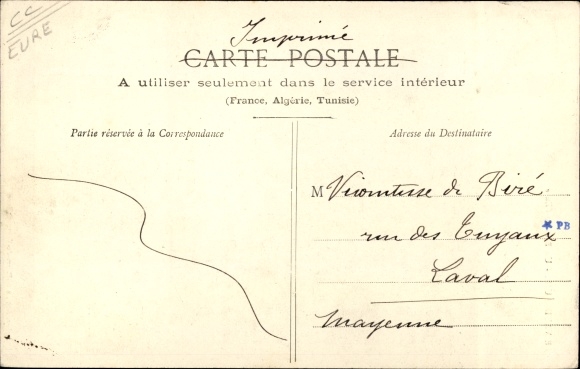 CC
EURE
Imprimé
CARTE POSTALE
A utiliser seulement dans le service intérieur
(France, Algérie, Tunisie)
Partie réservée à la Correspondance
Adresse du Destinataire
M Vicomtesse de Biré
rue des Tuyaux
PB
Laval
Mayenne